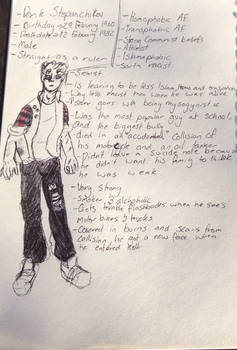 - Denis Stepanchikov
- Birthday → 29 Febuary 1960
- Deathdate → 12 Febuary 1982
- Male
- Straight as a ruler
- Homophobic AF
- Transphobic AF
- Strong Communist beliefs
- Atheist
- Islamaphobic
- Sorta racist
- Sexist
- Is learning to be less
way less
than when he was alive
goes with being mysogynist
- Was the most popular guy at school,
and the biggest bully
- died in an accidental collision of
his motorcycle and an oil tanker
- Didn't leave a suicide note because
he didn't want his family to think
he was weak
- Very strong
- Smoker & alchoholic
- Gets terrible flashbacks when he sees
Motor bikes & trucks
- Covered in burns and scars from
collision, he got a new face when
he entered Hell